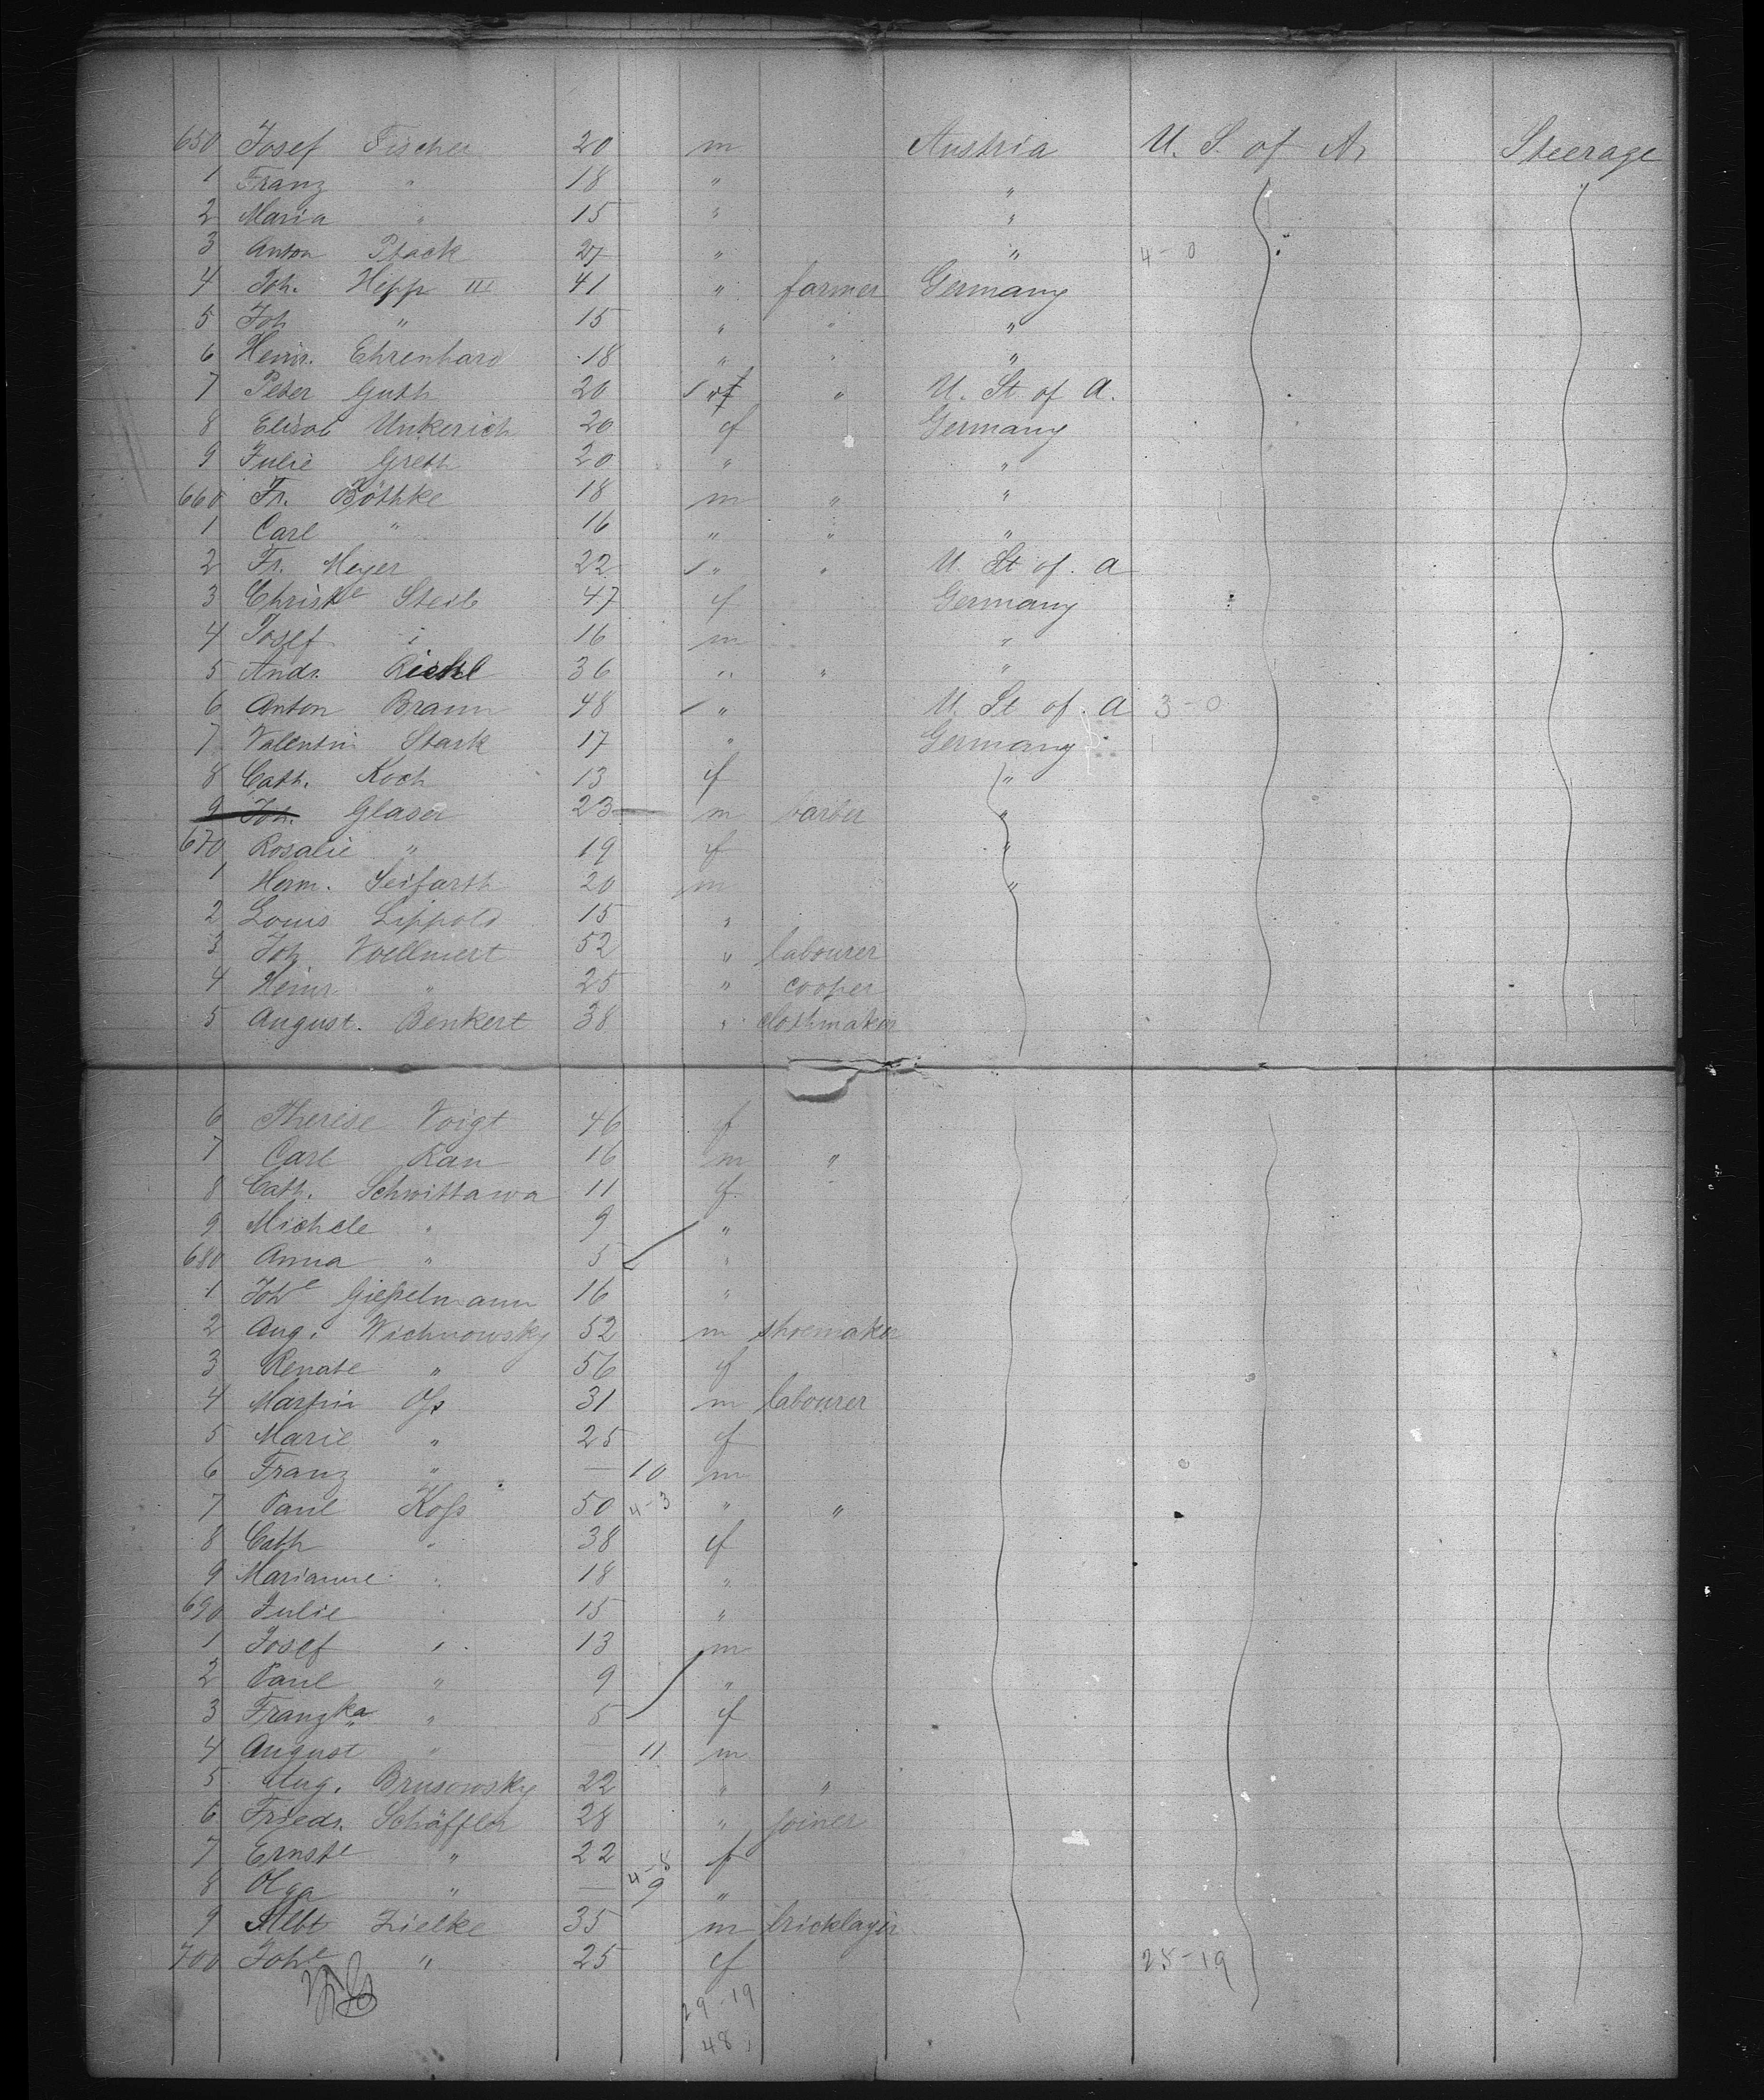 650 Josef Fischer 20 m Austria U. S. of A. Steerage
1 Franz " 18 " " "
2 Maria " 15 " "
3 Anton Ptack 27 " " " 4-0
4 Joh. Hepp III 41 " farmer Germany
5 Joh " 15 " " "
6 Heinr. Ehrenhard 18 " " "
7 Peter Guth 20 " " U. St. of A.
8 Elisab Unkerich 20 f Germany
9 Julie Greth 20 " "
660 Fr. Böthke 18 m " "
1 Carl " 16 " " "
2 Fr. Meyer 22 " " U. St of. A
3 Christe Steib 47 f Germany
4 Josef " 16 m "
5 Andr. Riehl 36 " " "
6 Anton Braun 48 " U. St of. A 3-0
7 Valentin Stark 17 " Germany
8 Cath. Koch 13 f "
9 Joh. Glaser 23 m barber "
670 Rosalie " 19 f "
1 Herm. Seifarth 20 m "
2 Louis Lippold 15 "
3 Joh Voellmert 52 " labourer
4 Heinr. " 25 " cooper
5 August. Benkert 38 " clothmaker
6 Therese Voigt 46 f
7 Carl Rau 16 m "
8 Cath. Schwittawa 11 f
9 Michele " 9 "
680 Anna " 5 "
1 Johe Gießelmann 16 "
2 Aug. Wichnowsky 52 m shoemaker
3 Renate " 56 f
4 Martin Oß 31 m labourer
5 Marie " 25 f
6 Franz " — 10 m
7 Paul Koß 50 4-3 " "
8 Cath " 38 f
9 Marianne " 18 "
690 Julie " 15 "
1 Josef " 13 m
2 Paul " 9 "
3 Franzka " 5 f
4 August " — 11 m
5 Aug. Brusowsky 22 " "
6 Friedr. Schäffler 28 " joiner
7 Ernste " 22 f
8 Olga " — 4-8 9 "
9 Albt Zielke 35 m bricklayer
700 Johe " 25 f 25-19
29-19
48